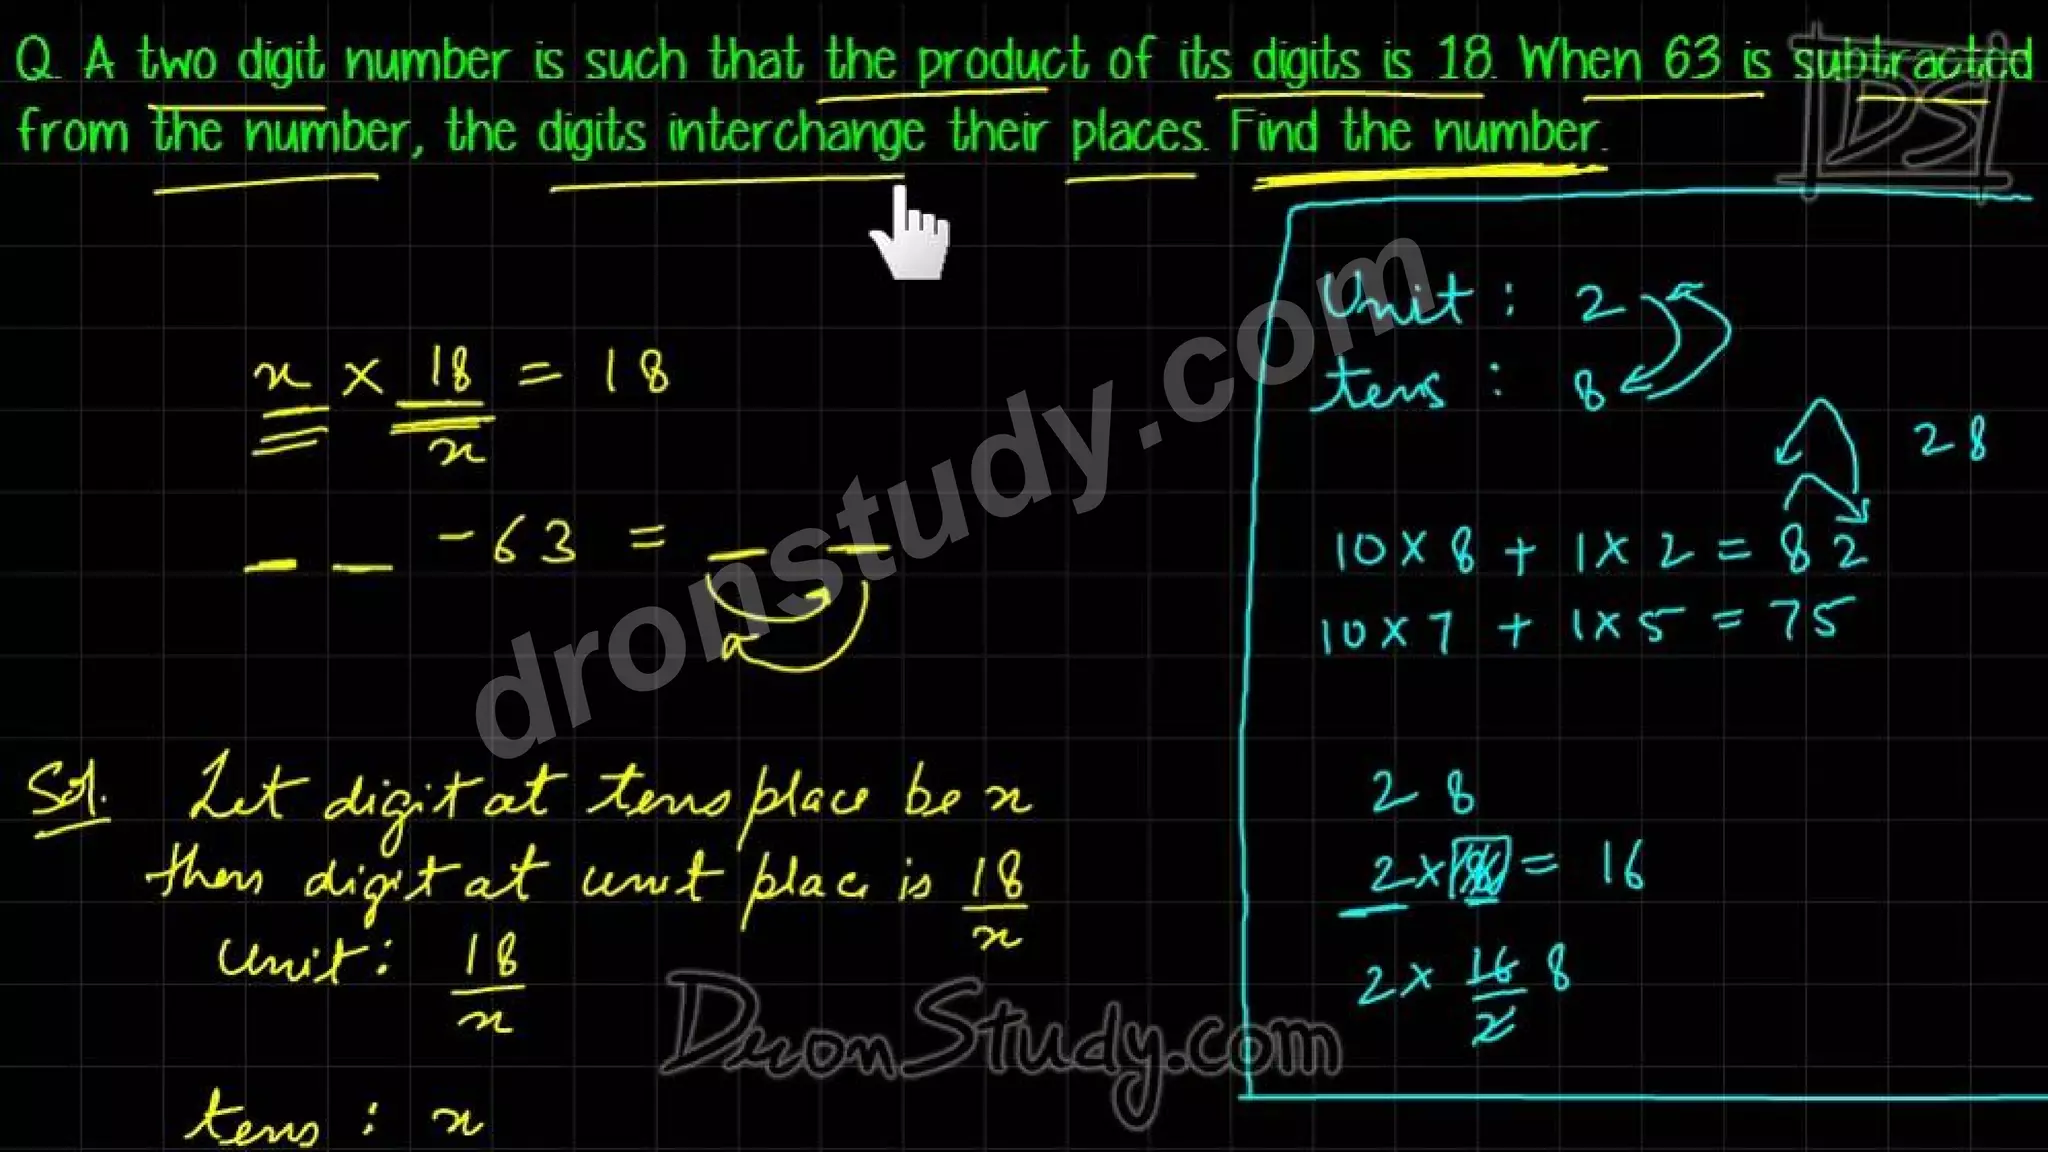 Q. A two digit number is such that the product of its digits is 18. When 63 is subtracted
from the number, the digits interchange their places. Find the number.
DS
x × 18/x = 18
_ _ - 63 = _ _
Sol. Let digit at tens place be x
then digit at unit place is 18/x
Unit : 18/x
tens : x
Unit : 2
tens : 8
28
10 × 8 + 1 × 2 = 82
10 × 7 + 1 × 5 = 75
2 8
2 × = 16
2 × 16/2 8
dronstudy.com
DronStudy.com